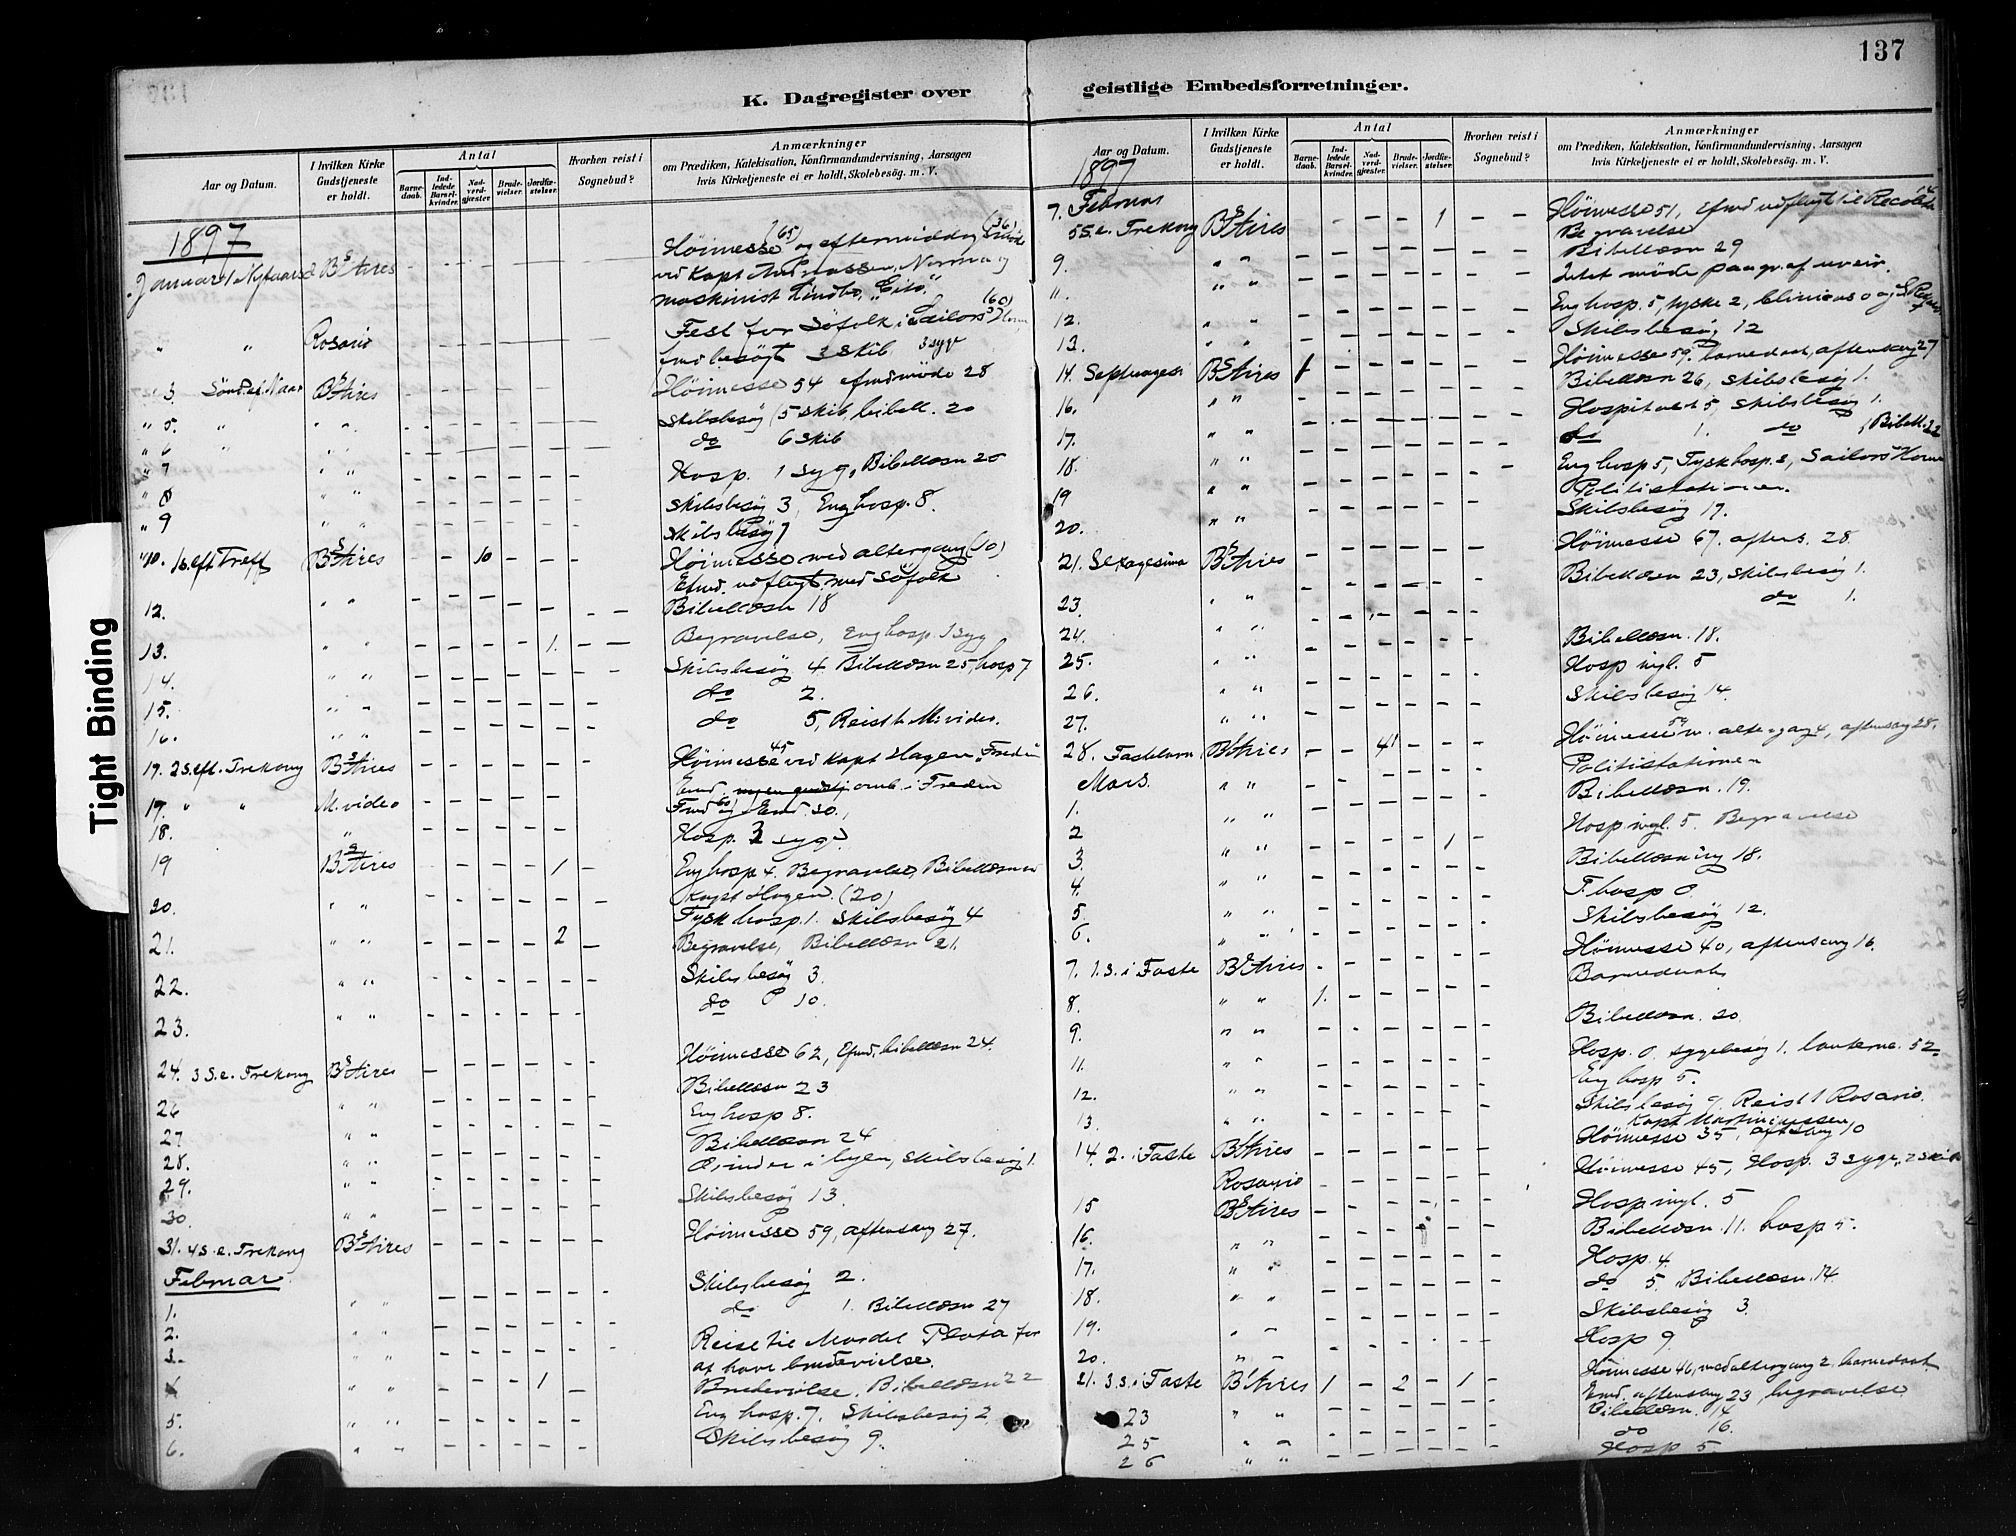 137
K. Dagregister over
geistlige Embedsforretninger.
Aar og Datum.
I hvilken Kirke Gudstjeneste er holdt.
Antal
Barne-daab.
Ind-ledede Barsel-kvinder.
Nad-verd-gjæster.
Brude-vielser.
Jordfæ-stelser.
Hvorhen reist i Sognebud?
Anmærkninger
om Prædiken, Katekisation, Konfirmandundervisning, Aarsagen
hvis Kirketjeneste ei er holdt, Skolebesøg. m. V.
1897
Januar 1 Nytaarsd Bs Aires - - - - - Høimesse (65) og eftermiddag (36)
ved Kapt
maskinist
" " Rosario Fest for Søfolk i Sailors Home (60)
fmd besøgt 3 skib 3 syge
" 3. Bs Aires Høimesse 54 efmdmøde 28
" 5. " " " Skibsbesøg 5 skib, bibell. 20
" 6 " " " do 6 skib
" 7 " " Hosp. 1 syg, Bibellæsn 20
" 8 " " Skibsbesøg 3, Eng hosp. 8.
" 9 " " Skibsbesøg 7
" 10. Bs Aires - - 10 - - Høimesse med altergang (10)
Efmd. udflugt med Søfolk
12. " " Bibellæsn 18
13. " " - - - - 1. - - Begravelse, Eng hosp. 1 syg
14. " " Skibsbesøg 4. Bibellæsn 25, hosp 7
15. " " do 2.
16. " " do 5, Reist t. M.video.
17. 2 S. eft. Trekong Bs Aires Høimesse 45 ved Kapt Hagen "Freden"
Emd. i Freden
17. " " M. video Fmd 60 Emd. 30.
18. " Hosp. 3 syge
19 Bs Aires - - - - 1 - Eng hosp 4. Begravelse, Bibellæsn
Kapt Hagen (20)
20. " " Tysk hosp. 1. Skibsbesøg 4
21. " " - - - - 2 - Begravelse, Bibellæsn 21.
22. " " Skibsbesøg 3.
23. " " do 10.
24. 3 S. e. Trekong Bs Aires Høimesse 62, Efmd. bibellæsn 24.
26 " " Bibellæsn 23
27 " " Eng hosp 8.
28. " " Bibellæsn 24
29. " " Ærinder i byen, skibsbesøg 1.
30. " " Skibsbesøg 13.
31. 4 S. e. Trekong Bs Aires Høimesse 59, aftensang 27.
Februar
1. " " Skibsbesøg 2.
2. " " do 1. Bibellæsn 27
3. " " Reise til Mardel Plata for
at have brudevielse.
4 " " - - - 1 - Brudevielse. Bibellæsn 22
5. " " Eng hosp. 7. Skibsbesøg 2
6. " " Skibsbesøg 9.
Aar og Datum.
I hvilken Kirke Gudstjeneste er holdt.
Antal
Barne-daab.
Ind-ledede Barsel-kvinder.
Nad-verd-gjæster.
Brude-vielser.
Jordfæ-stelser.
Hvorhen reist i Sognebud?
Anmærkninger
om Prædiken, Katekisation, Konfirmandundervisning, Aarsagen
hvis Kirketjeneste ei er holdt, Skolebesøg. m. V.
1897
Februar
7. 5 S. e. Trekong Bs Aires - - - - 1 - - Høimesse 51, Efmd udflugt til
Begravelse
9. " " Bibellæsn 29
11. " " Intet møde paagr. af uveir.
12. " " Eng hosp. 5, tyske 2,
13. " " Skibsbesøg 12
14. Septuages. Bs Aires 1 Høimesse 59, barnedaab, aftensang 27
16. " " Bibellæsn 26, skibsbesøg 1.
17. " " Hospitalet 5, skibsbesøg 1.
18. " " do 1. do 1, Bibell. 22
19 " " Eng hosp 5, Tysk hosp. 2, Sailors Home
Politistationer.
20. " " Skibsbesøg 17.
21. Sexagesima Bs Aires Høimesse 67. aftens. 28
23. " " Bibellæsn 23, skibsbesøg 1.
24. " " do 1.
25. " " Bibellæsn. 18.
26. " " Hosp. 5
27. " " Skibsbesøg 14.
28. Fastelavn Bs Aires - - 4 - - Høimesse 59 m. altergang 4, aftensang 28.
Mars. " " Politistationen
1. " " Bibellæsn. 19.
2 " " - - - - 1 - Hosp 5. Begravelse
3. Bibellæsning 18.
4. " " T. hosp 0
5. " " Skibsbesøg 12.
6. " "
7. 1. S. i Faste Bs Aires Høimesse 40, aftensang 16.
8. " " 1. - - - - - Barnedaab
9. " " Bibellæsn. 20
11. " " Hosp. 0, sygebesøg 1. 52.
12. " " Eng hosp 5.
13. " " Skibsbesøg 9, Reist t Rosario.
14. 2. i Faste Bs Aires Høimesse 35, aftsang 10
Rosario Høimesse 45, Hosp. 3 syge, 2 skib
15 Bs Aires Hosp 5
16. " " Bibellæsn. 11. hosp 5.
17. " " Hosp. 4.
18. " " do 5. Bibellæsn. 14.
19. " " Skibsbesøg 3.
20. " " Hosp 9.
21. 3. S. i Faste Bs Aires 1 - 2 - 1 - Høimesse 46, med altergang 2, barnedaab
Emd. aftensang 23, begravelse
23 " " Bibellæsn. 14
25 " " do 16.
26 " " Hosp 5
Tight Binding